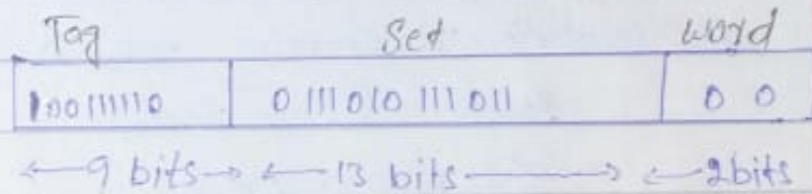 Tag Set word
100111110 0 111 010 111 011 0 0
←9 bits→ ←13 bits→ ←2bits